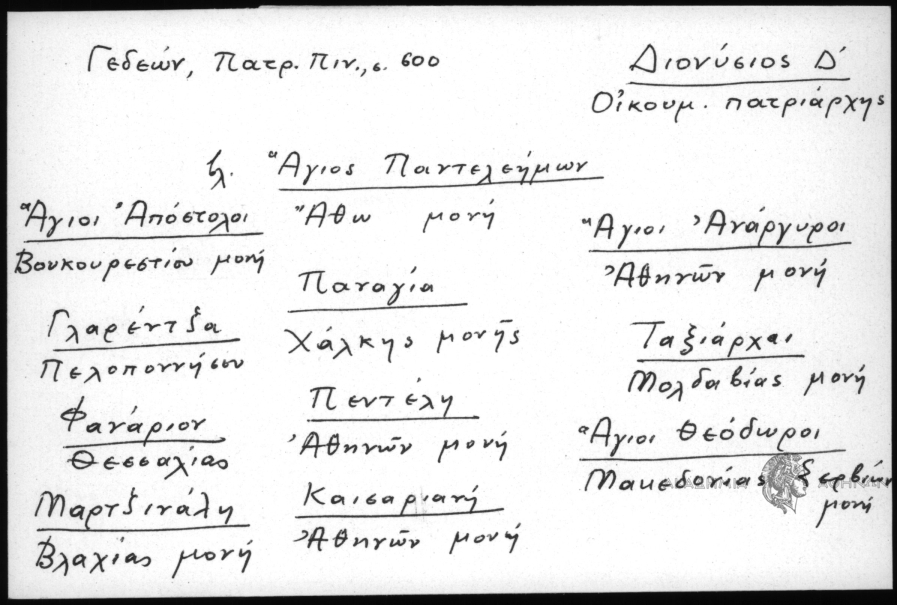 Γεδεών, Πατρ. Πιν., σ. 600
Διονύσιος Δ΄
Οἰκουμ. πατριάρχης
βλ. Ἅγιος Παντελεήμων
Ἄθω μονή
Ἅγιοι Ἀπόστολοι
Βουκουρεστίου μονή
Γλαρέντζα
Πελοποννήσου
Φανάριον
Θεσσαλίας
Μαρτζινάλη
Βλαχίας μονή
Παναγία
Χάλκης μονῆς
Πεντέλη
Ἀθηνῶν μονή
Καισαριανή
Ἀθηνῶν μονή
Ἅγιοι Ἀνάργυροι
Ἀθηνῶν μονή
Ταξιάρχαι
Μολδαβίας μονή
Ἅγιοι Θεόδωροι
Μακεδονίας Ξερβιών
μονή
ΑΚΑΔΗΜΙΑ ΑΘΗΝΩΝ